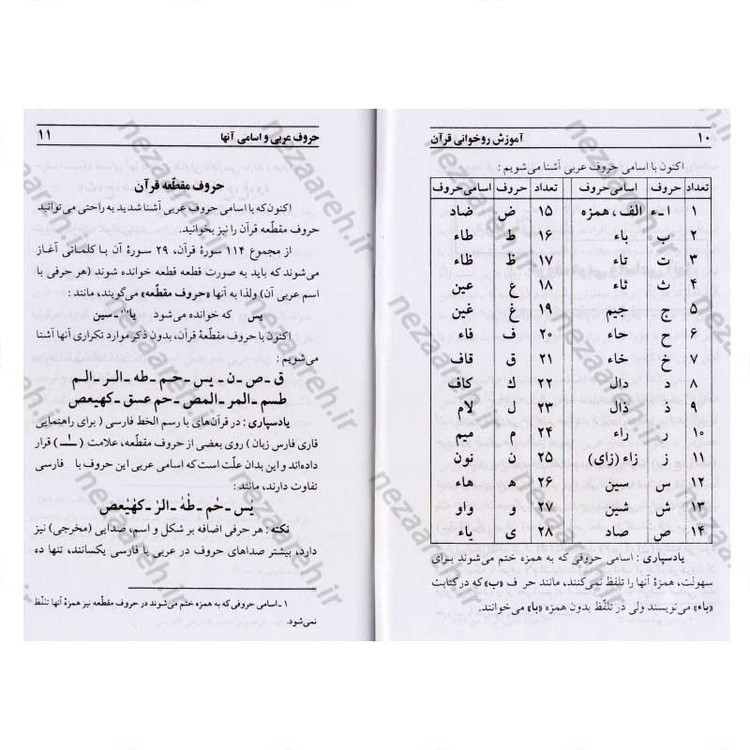 ۱۰ آموزش روخوانی قرآن
اکنون با اسامی حروف عربی آشنا می‌شویم :
تعداد حروف اسامی حروف تعداد حروف اسامی حروف
۱ ا ـ ء الف، همزه ۱۵ ض ضاد
۲ ب باء ۱۶ ط طاء
۳ ت تاء ۱۷ ظ ظاء
۴ ث ثاء ۱۸ ع عین
۵ ج جیم ۱۹ غ غین
۶ ح حاء ۲۰ ف فاء
۷ خ خاء ۲۱ ق قاف
۸ د دال ۲۲ ك کاف
۹ ذ ذال ۲۳ ل لام
۱۰ ر راء ۲۴ م میم
۱۱ ز زاء (زای) ۲۵ ن نون
۱۲ س سین ۲۶ ه هاء
۱۳ ش شین ۲۷ و واو
۱۴ ص صاد ۲۸ ی یاء
یادسپاری : اسامی حروفی که به همزه ختم می‌شوند برای
سهولت، همزهٔ آنها را تلفظ نمی‌کنند، مانند حر ف «ب» که در کتابت
«باء» می‌نویسند ولی در تلفّظ بدون همزه «با» می‌خوانند.
حروف عربی و اسامی آنها ۱۱
حروف مقطّعه قرآن
اکنون که با اسامی حروف عربی آشنا شدید به راحتی می‌توانید
حروف مقطّعه قرآن را نیز بخوانید.
از مجموع ۱۱۴ سورهٔ قرآن، ۲۹ سورهٔ آن با کلماتی آغاز
می‌شوند که باید به صورت قطعه قطعه خوانده شوند (هر حرفی با
اسم عربی آن) ولذا به آنها «حروف مقطّعه» می‌گویند، مانند :
یس که خوانده می‌شود یا(۱) ـ سین
اکنون با حروف مقطّعهٔ قرآن، بدون ذکر موارد تکراری آنها آشنا
می‌شویم :
ق ـ ص ـ ن ـ یس ـ حم ـ طه ـ الر ـ الم
طسم ـ المر ـ المص ـ حم عسق ـ کهیعص
یادسپاری : در قرآن‌های با رسم الخط فارسی ( برای راهنمایی
قاری فارس زبان ) روی بعضی از حروف مقطّعه، علامت ( ــٰـ ) قرار
داده‌اند و این بدان علّت است که اسامی عربی این حروف با فارسی
تفاوت دارند، مانند :
یٰس ـ حٰم ـ طٰهٰ ـ الرٰ ـ کهٰیٰعص
نکته : هر حرفی اضافه بر شکل و اسم، صدایی (مخرجی) نیز
دارد، بیشتر صداهای حروف در عربی با فارسی یکسانند، تنها ده
۱ ـ اسامی حروفی که به همزه ختم می‌شوند در حروف مقطعه نیز همزهٔ آنها تلفّظ
نمی‌شود.
nezaareh.ir